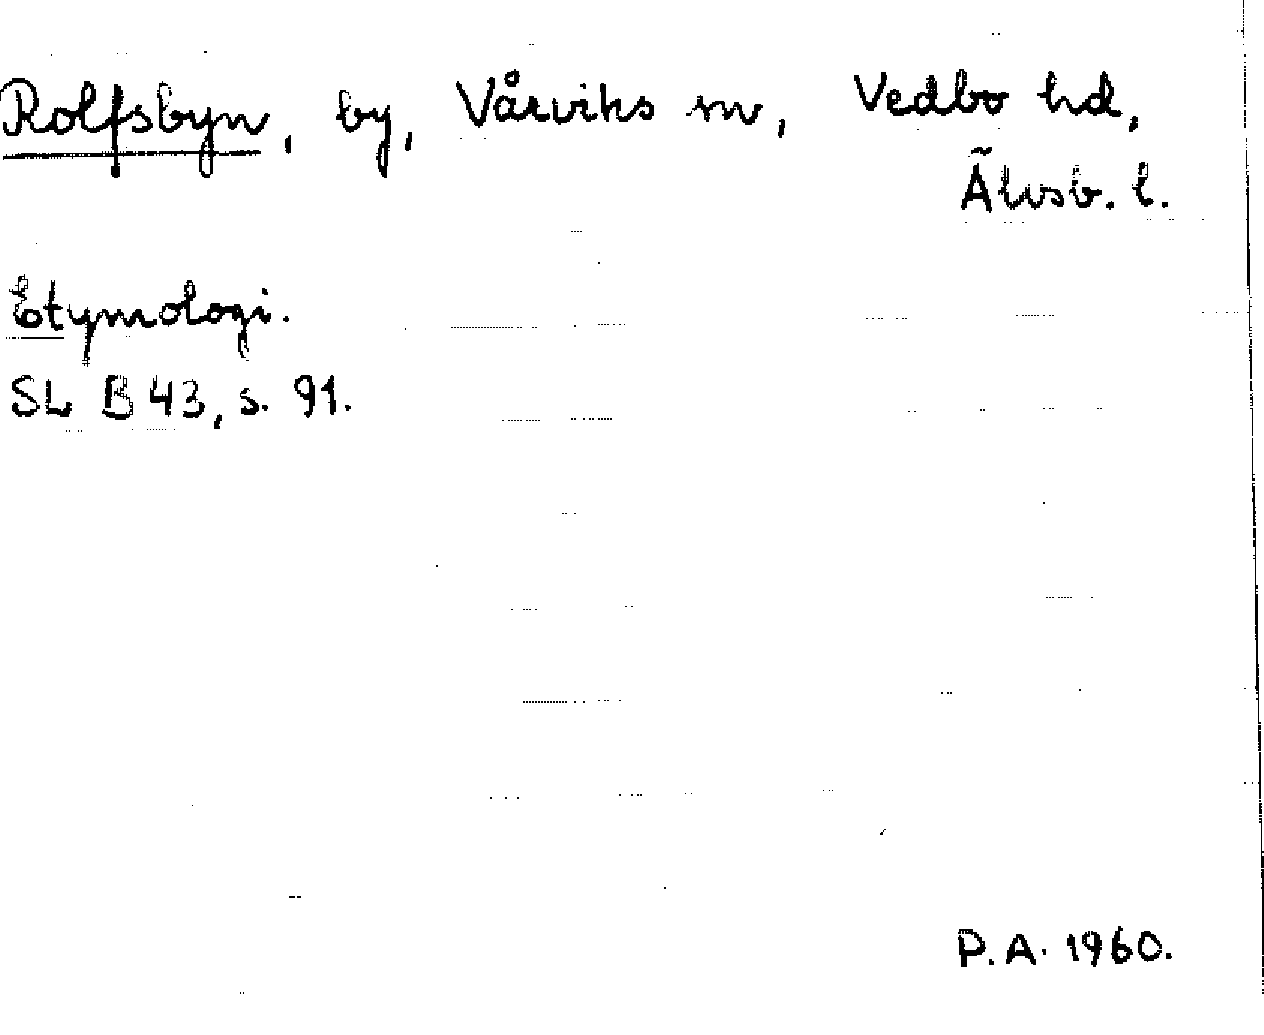 Rolfsbyn, by, Vårviks sn, Vedbo hd,
Älvsb. l.
Etymologi.
SL B 43, s. 91.
P.A. 1960.